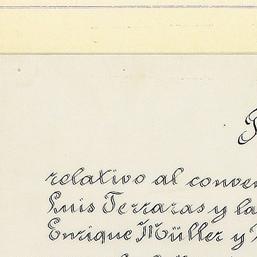 relativo al conven
Luis Terrazas y la
Enrique Müller y